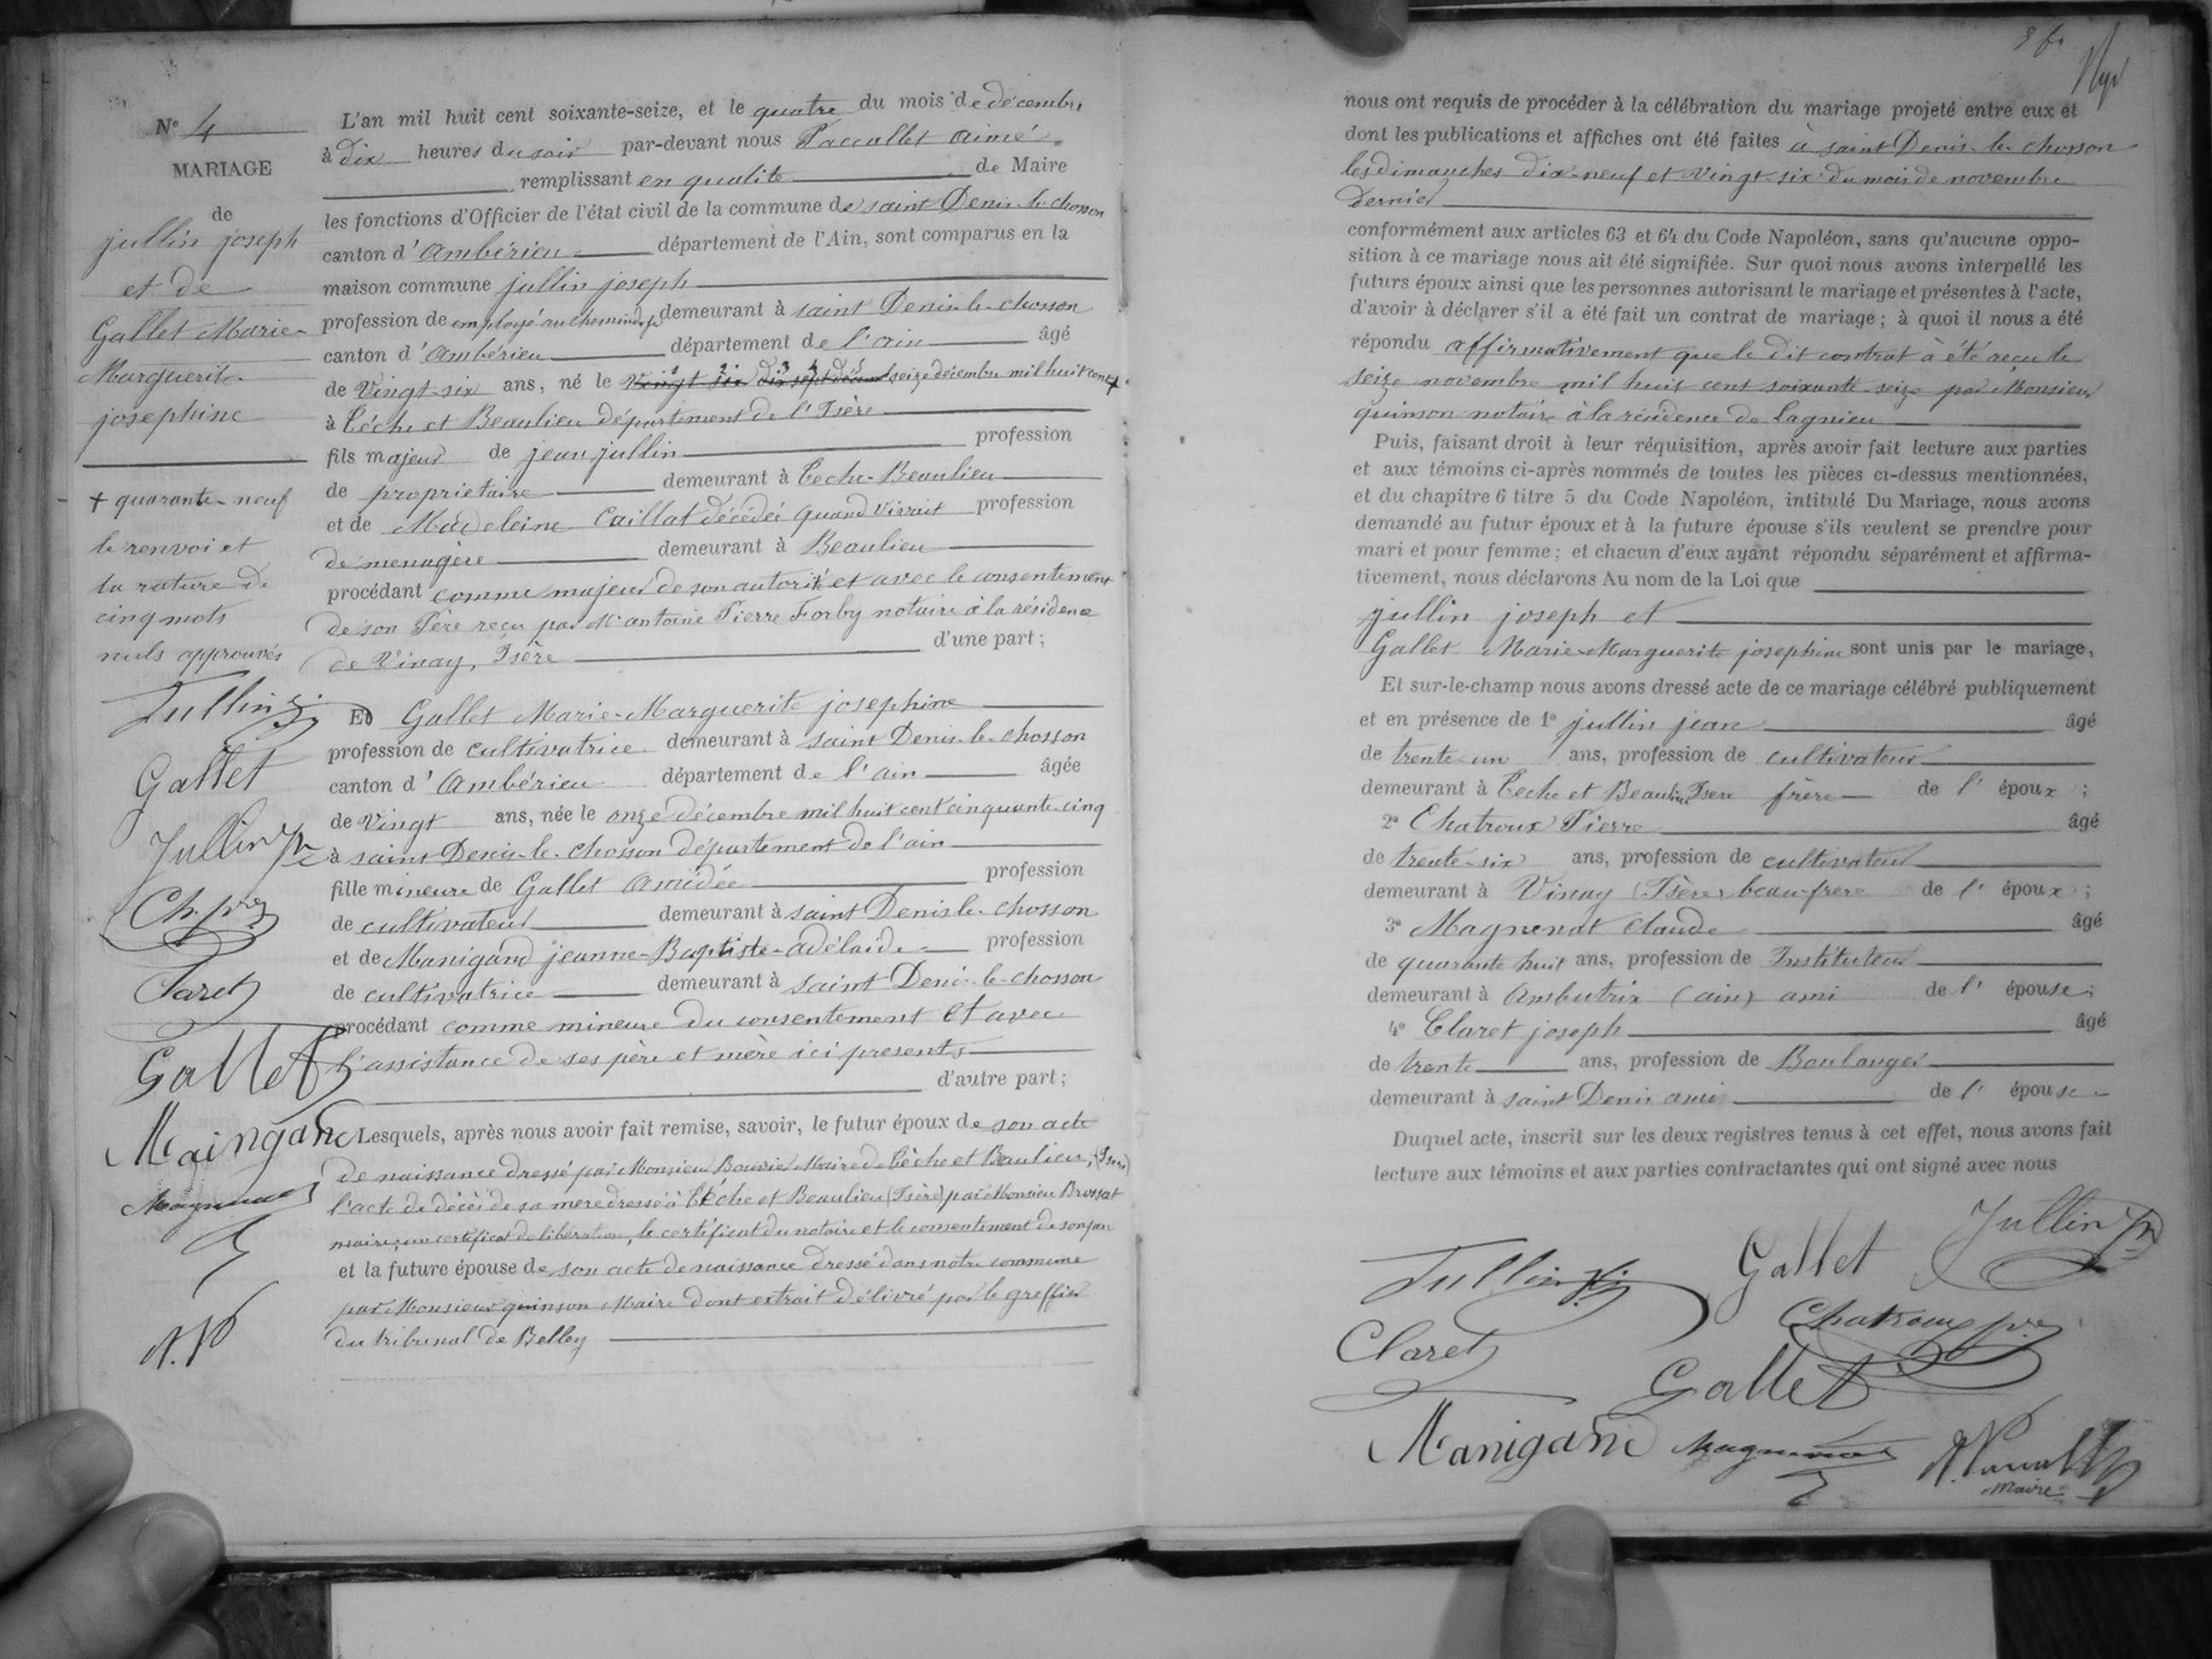 N° 4
MARIAGE
de
jullin joseph
et de
Gallet Marie-
Marguerite
josephine
+ quarante-neuf
le renvoi et
la rature de
cinq mots
nuls approuvés
Jullin
Gallet
Jullin Jn
Ch. pre
Claret
Gallet
Maingand
Magnenat
A. P
L'an mil huit cent soixante-seize, et le quatre du mois de décembre
à dix heures du soir par-devant nous Paccallet aimé
remplissant en qualité de Maire
les fonctions d'Officier de l'état civil de la commune de saint Denis-le-chosson
canton d'Ambérieu département de l'Ain, sont comparus en la
maison commune jullin joseph
profession de employé au chemin de fer demeurant à saint Denis-le-chosson
canton d'Ambérieu département de l'ain âgé
de Vingt-six ans, né le Vingt six dix sept décem seize décembre mil huit cent +
à Têche et Beaulieu département de l'Isère
fils majeur de jean jullin profession
de propriétaire demeurant à Têche-Beaulieu
et de Madeleine Caillat décédée quand vivait profession
de menagère demeurant à Beaulieu
procédant comme majeur de son autorité et avec le consentement
de son Père reçu par Me antoine Pierre Forby notaire à la résidence
de Vinay, Isère d'une part;
Et Gallet Marie-Marguerite josephine
profession de cultivatrice demeurant à saint Denis-le-chosson
canton d'Ambérieu département de l'ain âgée
de Vingt ans, née le onze décembre mil huit cent cinquante-cinq
à saint Denis-le-chosson département de l'ain
fille mineure de Gallet Amédée profession
de cultivateur demeurant à saint Denis le-chosson
et de Manigand jeanne-Baptiste-adélaïde profession
de cultivatrice demeurant à saint Denis-le-chosson
procédant comme mineure du consentement et avec
l'assistance de ses père et mère ici presents
d'autre part;
Lesquels, après nous avoir fait remise, savoir, le futur époux de son acte
de naissance dressé par Monsieur Bouvier Maire de Têche et Beaulieu, (Isère)
l'acte de décès de sa mere dressé à Têche et Beaulieu (Isère) par Monsieur Brossat
maire, un certificat de libération, le certificat du notaire et le consentement de son père
et la future épouse de son acte de naissance dressé dans notre commune
par Monsieur quinson Maire dont extrait délivré par le greffier
du tribunal de Belley
nous ont requis de procéder à la célébration du mariage projeté entre eux et
dont les publications et affiches ont été faites à saint Denis-le-chosson
les dimanches dix-neuf et vingt-six du mois de novembre
dernier
conformément aux articles 63 et 64 du Code Napoléon, sans qu'aucune oppo-
sition à ce mariage nous ait été signifiée. Sur quoi nous avons interpellé les
futurs époux ainsi que les personnes autorisant le mariage et présentes à l'acte,
d'avoir à déclarer s'il a été fait un contrat de mariage; à quoi il nous a été
répondu affirmativement que le dit contrat à été reçu le
seize novembre mil huit cent soixante-seize par Monsieur
quinson notaire à la résidence de Lagnieu
Puis, faisant droit à leur réquisition, après avoir fait lecture aux parties
et aux témoins ci-après nommés de toutes les pièces ci-dessus mentionnées,
et du chapitre 6 titre 5 du Code Napoléon, intitulé Du Mariage, nous avons
demandé au futur époux et à la future épouse s'ils veulent se prendre pour
mari et pour femme; et chacun d'eux ayant répondu séparément et affirma-
tivement, nous déclarons Au nom de la Loi que
jullin joseph et
Gallet Marie-Marguerite josephine sont unis par le mariage,
Et sur-le-champ nous avons dressé acte de ce mariage célébré publiquement
et en présence de 1° jullin jean âgé
de trente-un ans, profession de cultivateur
demeurant à Têche et Beaulieu Isère frère de l'époux;
2° Chatroux Pierre âgé
de trente-six ans, profession de cultivateur
demeurant à Vinay (Isère) beau-frere de l'époux;
3° Magnenat Claude âgé
de quarante huit ans, profession de Instituteur
demeurant à Ambutrix (ain) ami de l'épouse;
4° Claret joseph âgé
de trente ans, profession de Boulanger
demeurant à saint Denis ami de l'épouse
Duquel acte, inscrit sur les deux registres tenus à cet effet, nous avons fait
lecture aux témoins et aux parties contractantes qui ont signé avec nous
Jullin Gallet Jullin Jn
Claret Chatroux pre
Gallet
Manigand Magnenat A. Paccallet
maire